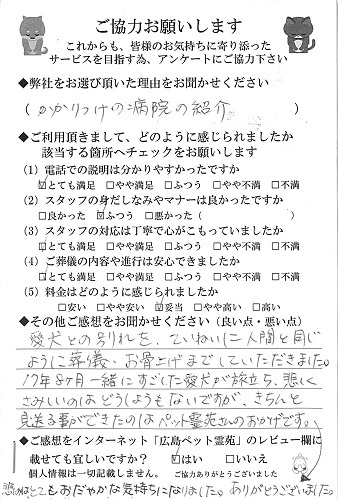 ご協力お願いします
これからも、皆様のお気持ちに寄り添った
サービスを目指す為、アンケートにご協力下さい
◆弊社をお選び頂いた理由をお聞かせください
( かかりつけの病院の紹介 )
◆ご利用頂きまして、どのように感じられましたか
該当する箇所へチェックをお願いします
(1) 電話での説明は分かりやすかったですか
☑とても満足 □やや満足 □ふつう □やや不満 □不満
(2) スタッフの身だしなみやマナーは良かったですか
□良かった ☑ふつう □悪かった ( )
(3) スタッフの対応は丁寧で心がこもっていましたか
☑とても満足 □やや満足 □ふつう □やや不満 □不満
(4) ご葬儀の内容や進行は安心できましたか
☑とても満足 □やや満足 □ふつう □やや不満 □不満
(5) 料金はどのように感じられましたか
□安い □やや安い ☑妥当 □やや高い □高い
◆その他ご感想をお聞かせください (良い点・悪い点)
愛犬との別れを、ていねいに人間と同じ
ように葬儀、お骨上げまでしていただきました。
17年8ケ月一緒にすごした愛犬が旅立ち、悲しく
さみしいのはどうしようもないですが、きちんと
見送る事ができたのはペット霊苑さんのおかげです。
◆ご感想をインターネット「広島ペット霊苑」のレビュー欄に
載せても宜しいですか? ☑はい □いいえ
個人情報は一切記載しません。 ご協力ありがとうございました
とてもおだやかな気持ちになりました。ありがとうございました。